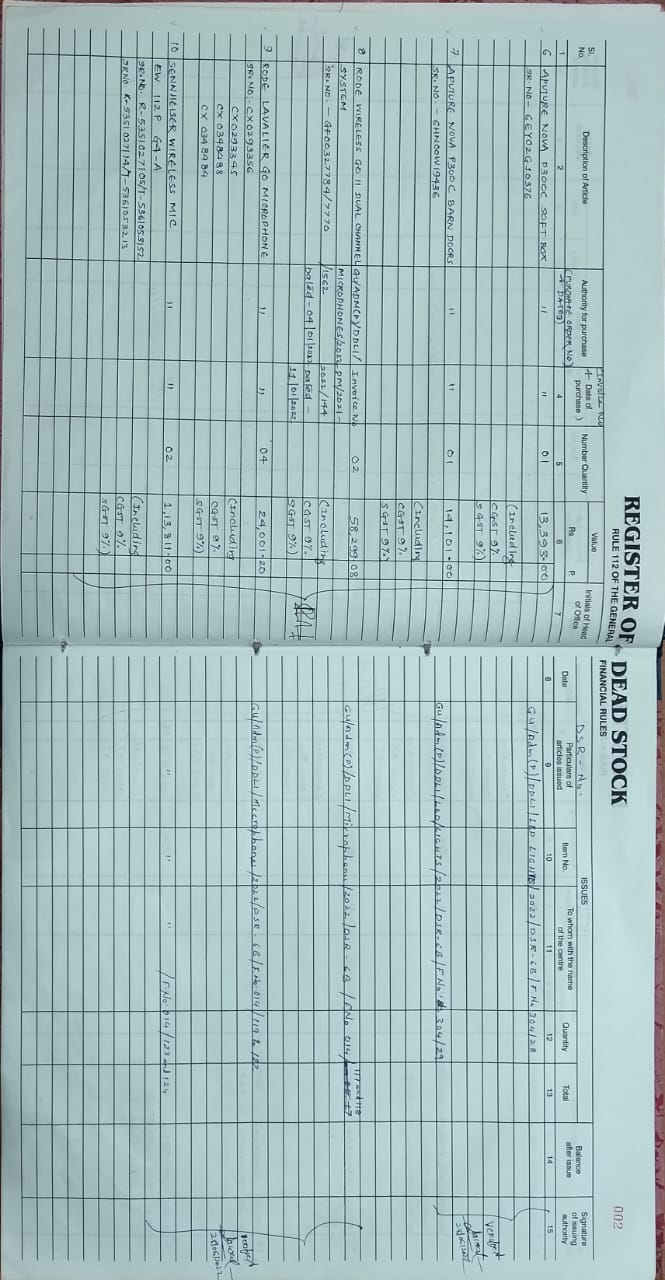 REGISTER OF DEAD STOCK
RULE 112 OF THE GENERAL FINANCIAL RULES
002
Sl. No.
Description of Article
Authority for purchase
(PURCHASE ORDER NO & DATES)
Invoice No
& Date of purchase )
Number Quantity
Value
Rs P
Initials of Head of Office
1 2 4 5 6 7
6 APUTURE NOVA P300C SOFT BOX " " 01 13,393.00
SR. NO- 6EY02G10376
(Including
CGST 9%
SGST 9%)
7 APUTURE NOVA P300C BARN DOORS " " 01 14,101.00
SR. NO. - 6HN00W19436
(Including
CGST 9%
SGST 9%)
8 RODE WIRELESS GO II DUAL CHANNEL GU/ADM(P)/DDLI/ Invoice No 02 58,299.08
SYSTEM MICROPHONES/2022 PM/2021-
SR. NO. - GF00327784/7770 /1562 2022/144 (Including
Dated-04/01/2022 Dated- CGST 9%
11/01/2022 SGST 9%)
9 RODE LAVALIER GO MICROPHONE " " 04 24,001.20
SR. NO. CX0293356
CX0293345 (Including
CX0348488 CGST 9%
CX0348484 SGST 9%)
10 SENNHEISER WIRELESS MIC " " 02 1,13,811.00
EW 112P G4-A
SR. NO. R-5351027105/T-5361053152 (Including
SR NO R-5351027114/T-5361053213 CGST 9%
SGST 9%)
DSR-No.
ISSUES
Date
Particulars of articles issued
Item No.
To whom with the name of the centre
Quantity
Total
Balance after issue
Signature of issuing authority
8 9 10 11 12 13 14 15
GU/Adm(P)/DDLI/LED LIGHTS/2022/DSR-6B/F.No 304/28
GU/Adm(P)/DDLI/LED/LIGHTS/2022/DSR-6B/F.No 304/29
verified
GU/Adm(P)/DDLI/Microphones/2022/DSR-6B/F.No 014/117 and 118
GU/Adm(P)/DDLI/Microphones/2022/DSR-6B/F.No.014/119 to 122
" " " /F.No.014/123 and 124
verified